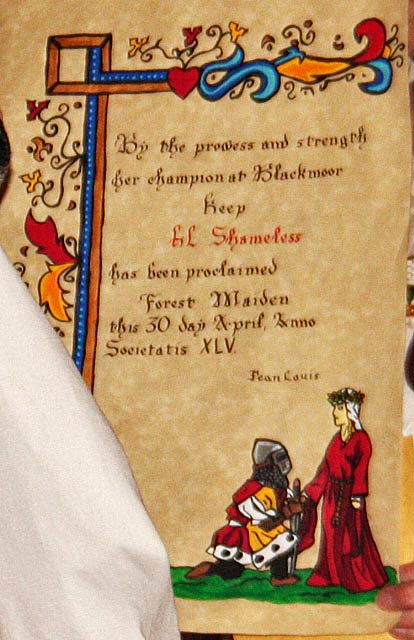 By the prowess and strength
her champion at Blackmoor
Keep
LL Shameless
has been proclaimed
Forest Maiden
this 30 day April, Anno
Societatis XLV.
Jean Louis